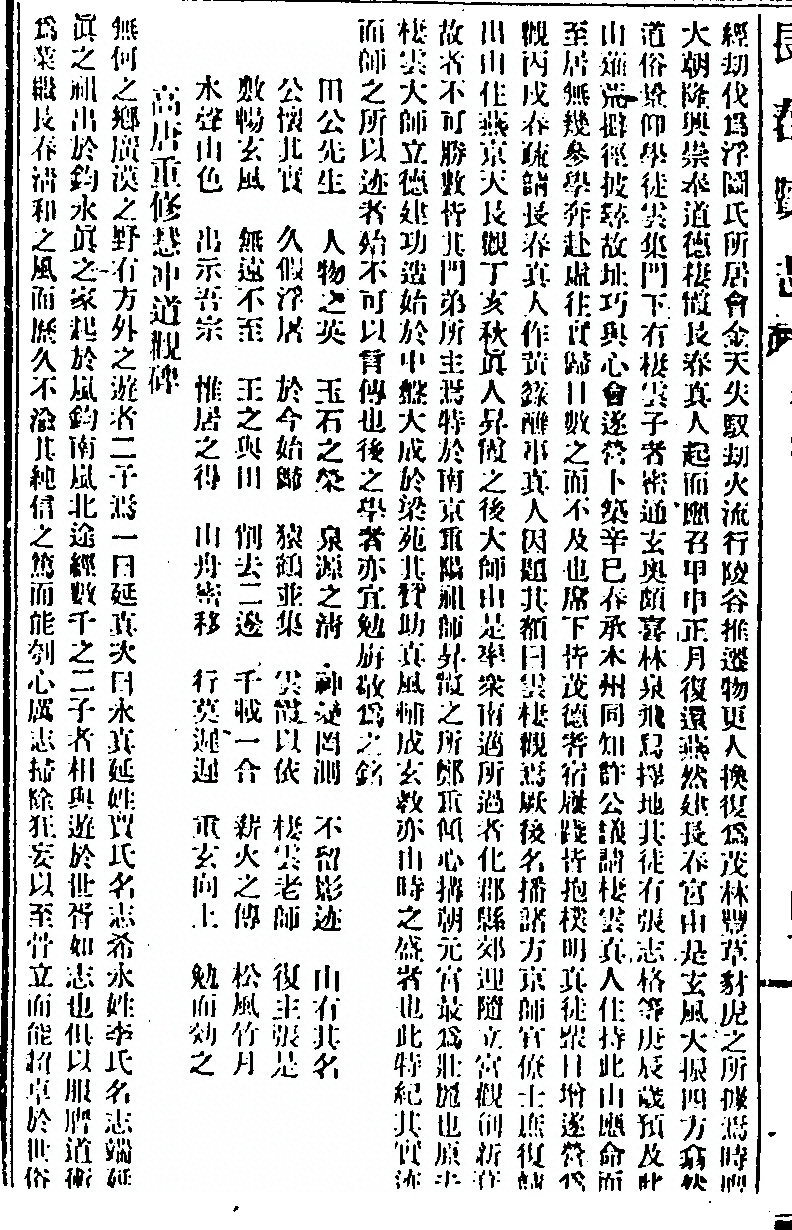 經劫伐爲浮圖氏所居會金天失馭劫火流行陵谷推遷物更人換復爲茂林豐草豺虎之所據焉時
大朝隆興崇奉道德棲霞長春真人起而應召甲申正月復還燕然建長春宮由是玄風大振四方翕然
道俗景仰學徒雲集門下有棲雲子者密通玄奧頗喜林泉飛舄擇地其徒有張志格等庚辰歲預及此
山薙荒擗徑披尋故址巧與心會遂營卜築辛巳春承本州同知許公議請棲雲真人住持此山應命而
至居無幾參學奔赴虛往實歸日數之而不及也席下皆茂德耆宿履踐皆抱樸明真徒衆日增遂營爲
觀丙戌春疏請長春真人作黃籙醮事真人因題其額曰雲棲觀焉厥後名播諸方京師官僚士庶復請
出山住燕京天長觀丁亥秋眞人昇霞之後大師由是率衆南邁所過者化郡縣郊迎隨立宮觀創新
故者不可勝數皆其門弟所主焉特於南京重陽祖師昇霞之所鄭重傾心搆朝元宮最爲壯麗也原夫
棲雲大師立德建功造始於中盤大成於梁苑其贊助真風輔成玄教亦由時之盛者也此特紀其實迹
而師之所以迹者殆不可以言傳也後之學者亦宜勉旃敬爲之銘
田公先生 人物之英 玉石之榮 泉源之淸 神變罔測 不留影迹 山有其名
公懷其實 久假浮居 於今始歸 猿鶴並集 雲霞以依 棲雲老師 復主張是
敷暢玄風 無遠不至 王之與田 削去二邊 千載一合 薪火之傳 松風竹月
水聲山色 出示吾宗 惟居之得 山舟密移 行莫遲遲 重玄向上 勉而効之
高唐重修慧沖道觀碑
無何之鄉廣漠之野有方外之遊者二子焉一曰延真次曰永真延姓賈氏名志希永姓李氏名志端延
眞之祖出於鈞永眞之家起於嵐鈞南嵐北途經數千之二子者相與遊於世胥如志也俱以服膺道術
爲業繼長春淸和之風而歷久不渝其純信之篤而能刳心厲志掃除狂妄以至骨立而能超卓於世俗